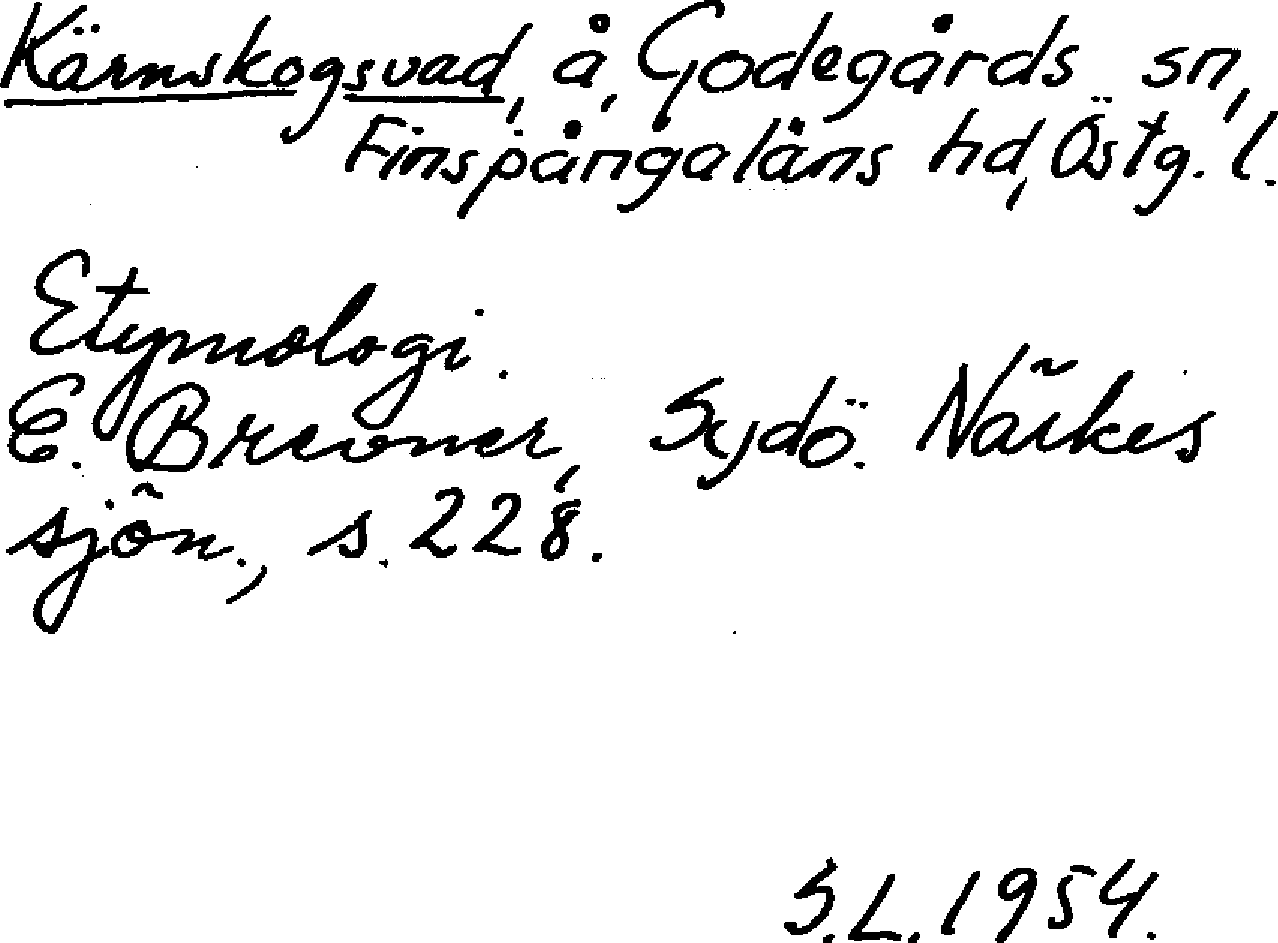 Kärnskogsvad, å, Godegårds sn,
Finspångaläns hd, Östg. l.
Etymologi.
E. Brevner, Sydö. Närkes
sjön., s. 228.
S.L. 1954.